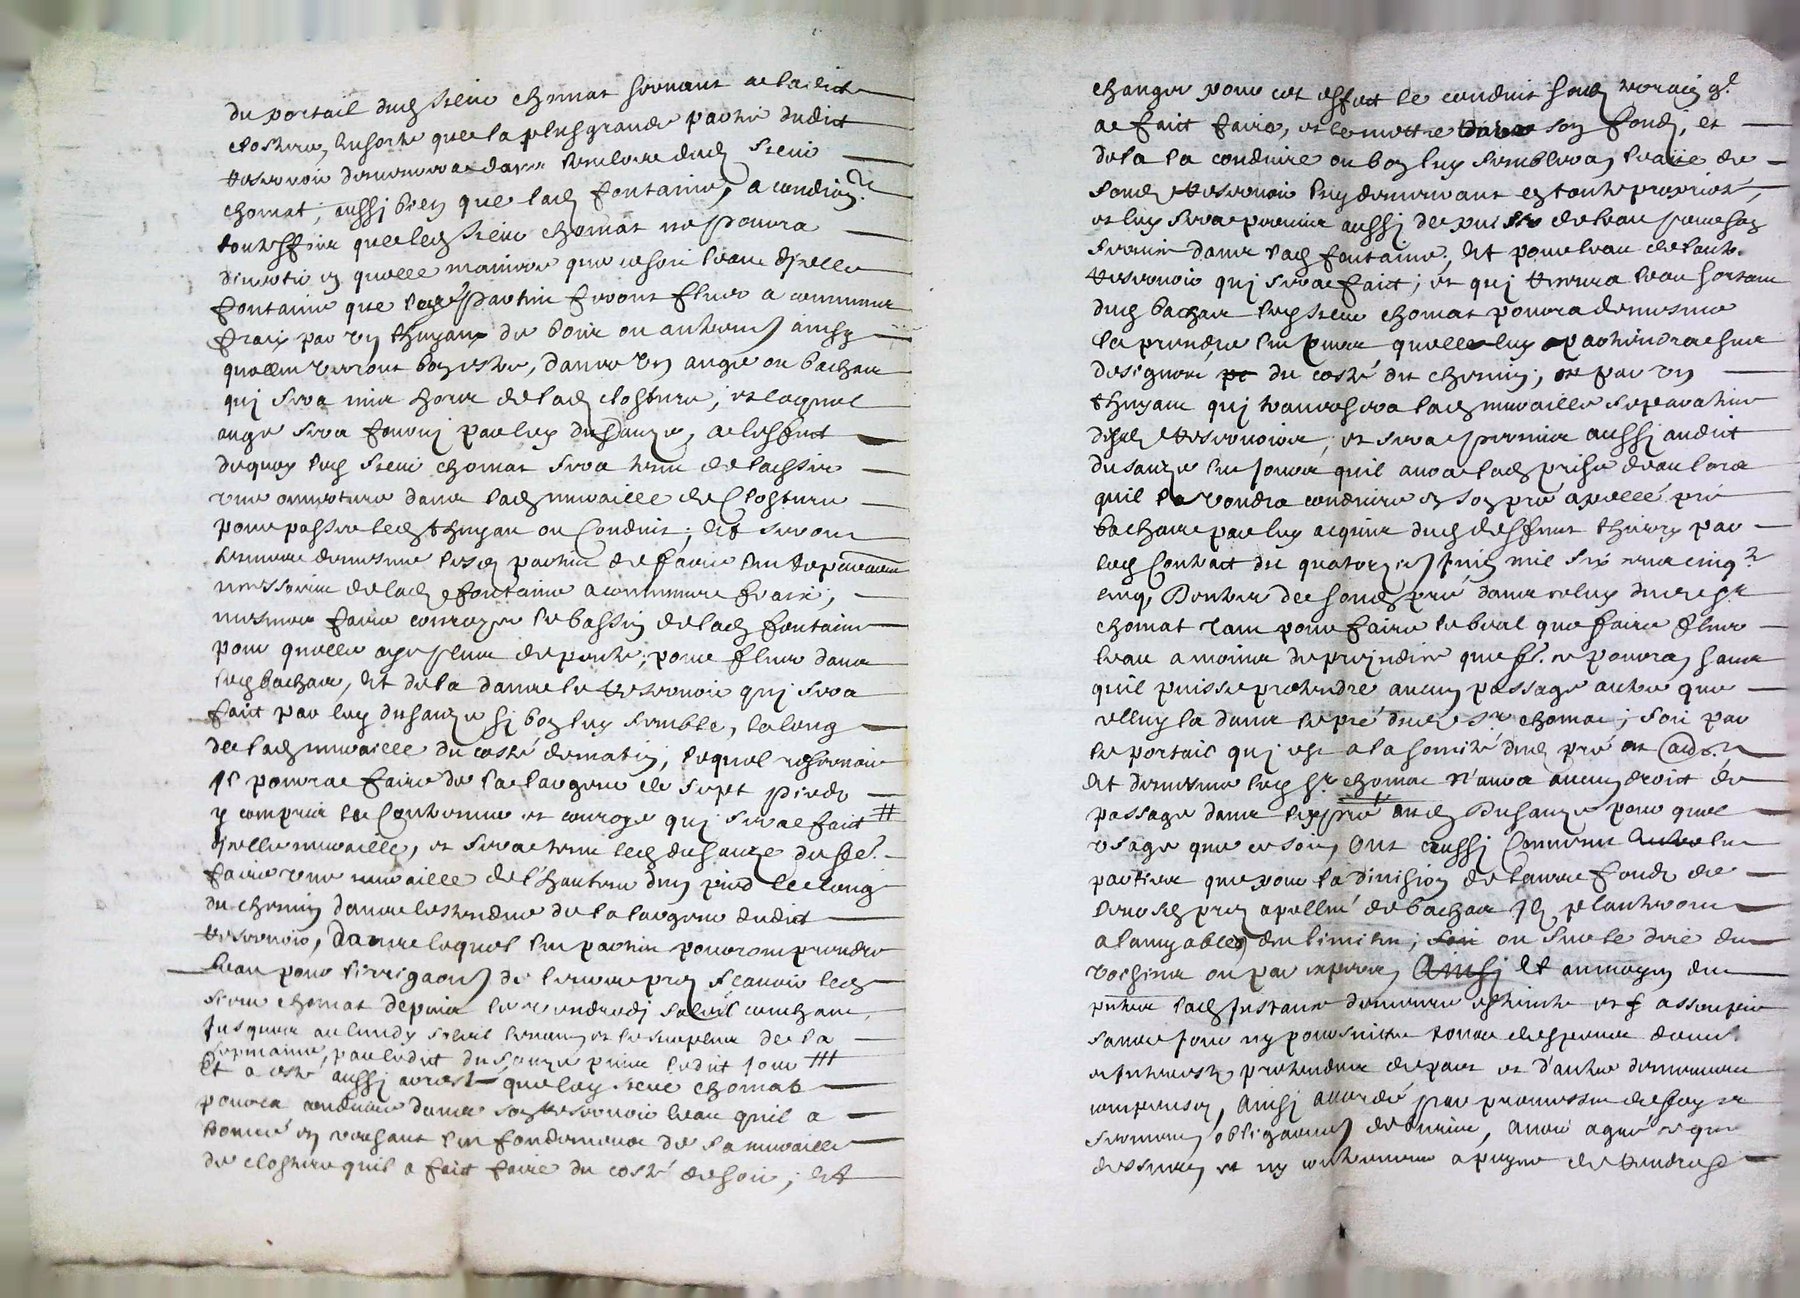 du portail dud sieur chomat servant a ladicte
closture, ensorte que la plus grande partie dudict
reservoir demeurera dans lenclore dud sieur
chomat, aussi bien que lad fontaine, a condion
toutesfois que led sieur chomat ne poura
divertir en quelle maniere que ce soit leau d'jcelle
fontaine que lesd parties feront fluer a communs
fraix par un thuyaux de bois ou autrement ainsy
quelles verront bon estre, dans un auge ou bachat
qui sera mis hors de lad closture, et lequel
auge sera fourni par luy dusauze, a leffect
dequoy led sieur chomat sera tenu de laisser
une ouverture dans lad muraille de closture
pour passer led thuyau ou conduit; Et seront
tenues de mesme lesd parties de faire les
necessaires de lad fontaine a communs fraix;
mesmes faire conroyer le bassin de lad fontaine
pour quelle aye plus de pente, pour fluer dans
led bachat, Et de la dans le reservoir qui sera
faict par luy dusauze si bon luy semble, le long
de lad muraille du costé de matin, lequel reservoir
Il poura faire de la largeur de sept pieds
y compris les et conroye qui sera faict #
d'jcelle muraille, et sera tenu led dusauze de
faire une muraille de l'hauteur d'un pied le long
du chemin dans lestendue de la largeur dudict
reservoir, dans lequel les parties pouront prendre
leau pour lirrigaon de leurs prez scavoir led
sieur chomat depuis le vendredi soleil couchant
jusques au lundy soleil levant et le surplus de la
sepmaine, par ledit dusauze ledit jour ###
Et a esté aussi accordé que led sieur chomat
poura conduire dans son reservoir leau quil a
trouvé en creusant les fondements de sa muraille
de closture quil a faict faire du costé de soir; Et
changer pour cet effect le conduit
a faict faire, et le mettre dans son fonds, et
de la la conduire ou bon luy semblera, leau de
sond reservoir luy demeurant en toute proprieté,
et luy sera permis aussi de puiser de leau pour son
service dans lad fontaine, Et pour leau de lautre
reservoir qui sera faict, et qui tirera leau sortant
dud bachat led sieur chomat poura de mesme
la prendre les jours quelle luy apartiendra sus
designés du costé du chemin, par un
thuyau qui traversera lad muraille separative
desd reservoirs, et sera permis aussi audict
dusauze les jours quil aura lad prise deau lors
quil la voudra conduire en son pré apellé pré
bachat par luy acquis dud deffunct thierry par
led contract du quatorze juin mil six cens cinq.te
cinq, dentrer de sond pré dans celuy dud sr
chomat tant pour faire le beal que faire fluer
leau a moins de prejudice que se poura, sans
quil puisse pretendre aucun passage autre que
celluy la dans le pré dud sr chomat; soit par
le portail qui est a la somité dud pré
Et de mesme led sr chomat n'aura aucun droict de
passage dans le pré dud Dusauze pour quel
usage que ce soit, Ont aussi convenu les
parties que pour la division de leurs fonds de
leursd prez apellés de bachat Ils planteront
a lamyable des limites; ou sur le dire de
voisins ou par expertz, Et au moyen du
lad instance demeure esteinte et assoupie
sans pour ny poursuivre tous despens dom.
et interests pretendus de part et d'autre demeurans
compensez, Ainsi accordé par promesse de foy et
serment, obligaons de biens, avoir agreé ce que
dessus, et ny contrevenir a peyne de tous despens